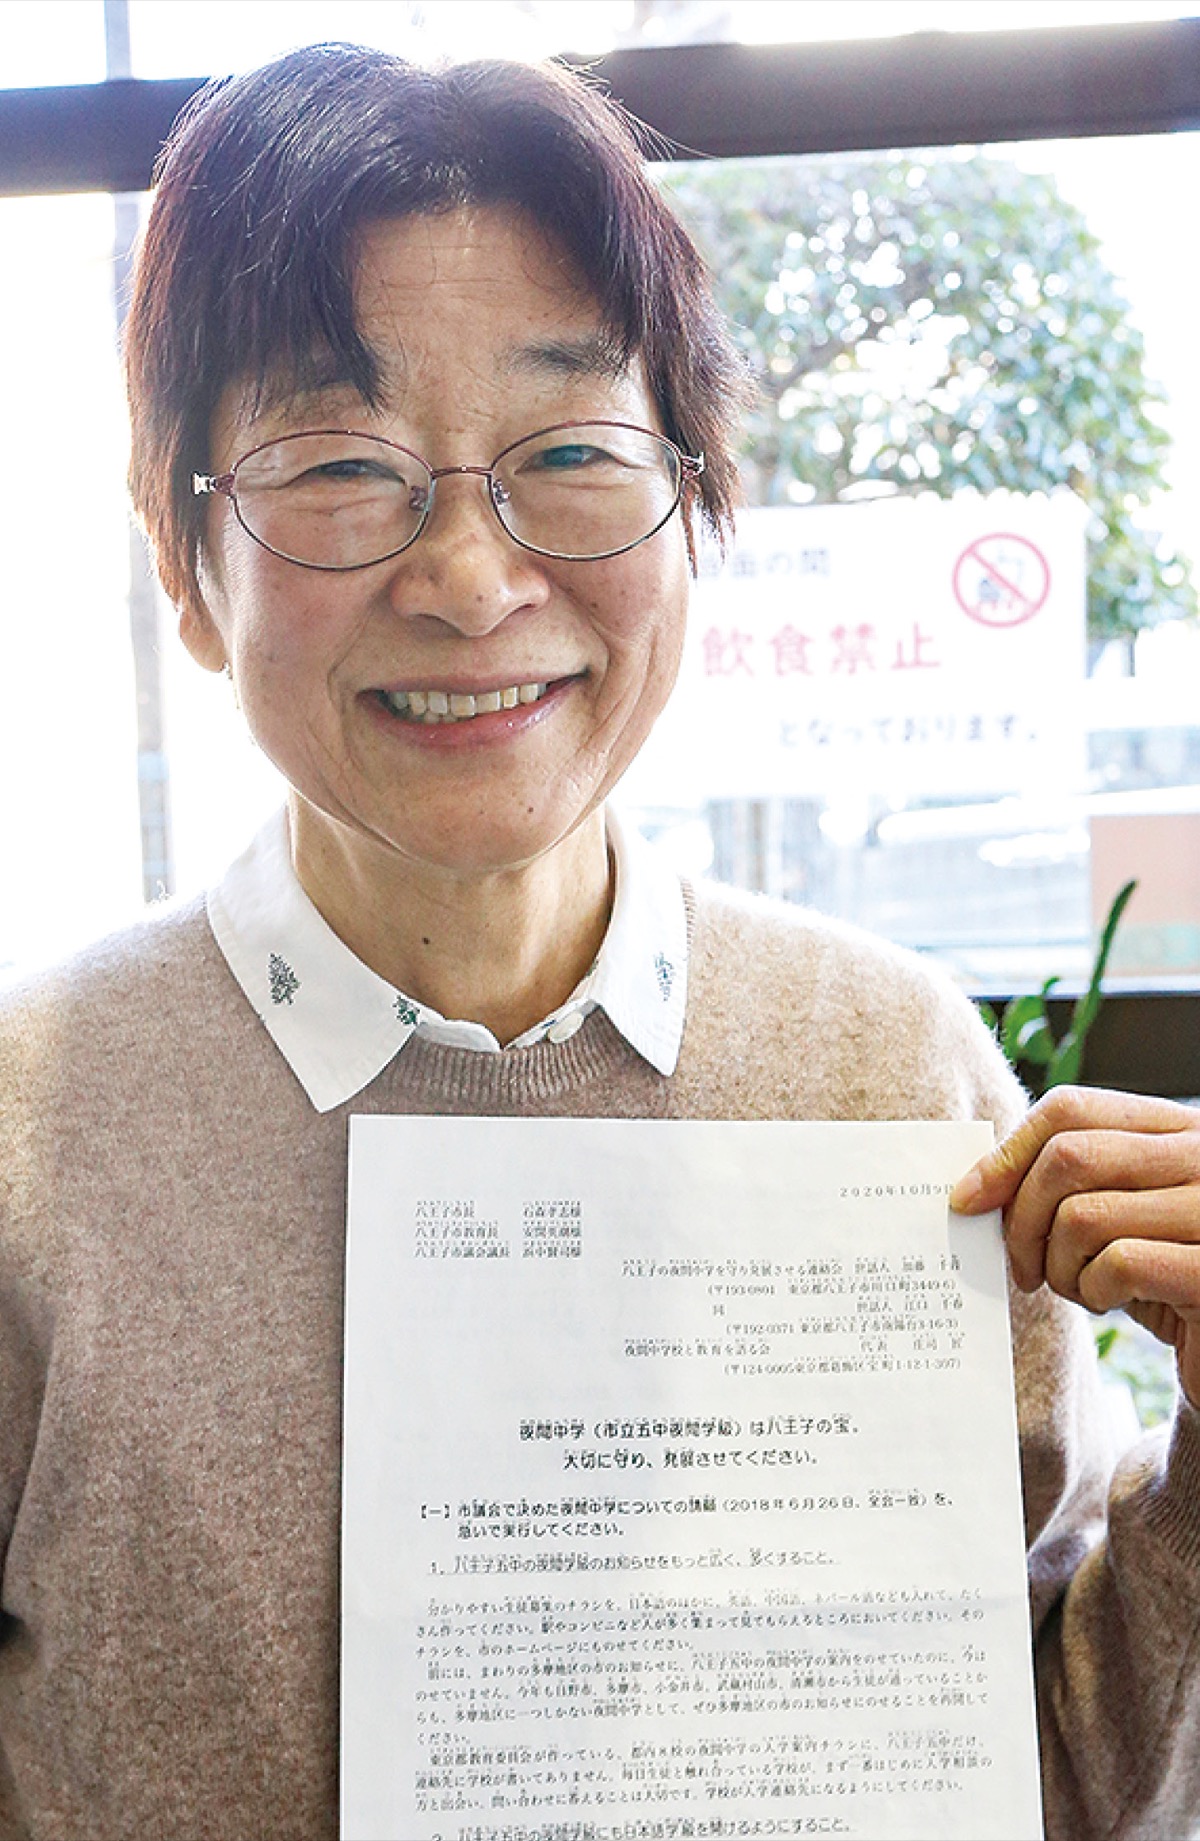 の間
飲食禁止
となっております。
2020年10月9日
八王子市長 石森孝志様
八王子市教育長 安間英潮様
八王子市議会議長 浜中賢司様
八王子の夜間中学を守り発展させる連絡会 世話人 加藤 千
(〒193-0801 東京都八王子市川口町3449-6)
同 世話人 江口 千春
(〒192-0371 東京都八王子市南陽台3-16-3)
夜間中学校と教育を語る会 代表 庄司 匠
(〒124-0005東京都葛飾区宝町1-12-1-307)
夜間中学(市立五中夜間学級)は八王子の宝。
大切に守り、発展させてください。
【一】市議会で決めた夜間中学についての請願(2018年6月26日、全会一致)を、
急いで実行してください。
1、八王子五中の夜間学級のお知らせをもっと広く、多くすること。
分かりやすい生徒募集のチラシを、日本語のほかに、英語、中国語、ネパール語なども入れて、たく
さん作ってください。駅やコンビニなど人が多く集まって見てもらえるところにおいてください。その
チラシを、市のホームページにものせてください。
前には、まわりの多摩地区の市のお知らせに、八王子五中の夜間中学の案内をのせていたのに、今は
のせていません。今年も日野市、多摩市、小金井市、武蔵村山市、清瀬市から生徒が通っていることか
らも、多摩地区に一つしかない夜間中学として、ぜひ多摩地区の市のお知らせにのせることを再開して
ください。
東京都教育委員会が作っている、都内8校の夜間中学の入学案内チラシに、八王子五中だけ、
連絡先に学校が書いてありません。毎日生徒と触れ合っている学校が、まず一番はじめに入学相談の
方と出会い、問い合わせに答えることは大切です。学校が入学連絡先になるようにしてください。
2、八王子五中の夜間学級にも日本語学級を開けるようにすること。